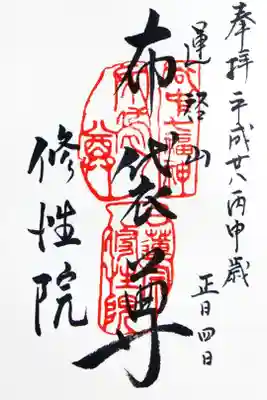 奉拝 平成廿八丙申歳
正月四日
運啓山
布袋尊
修性院